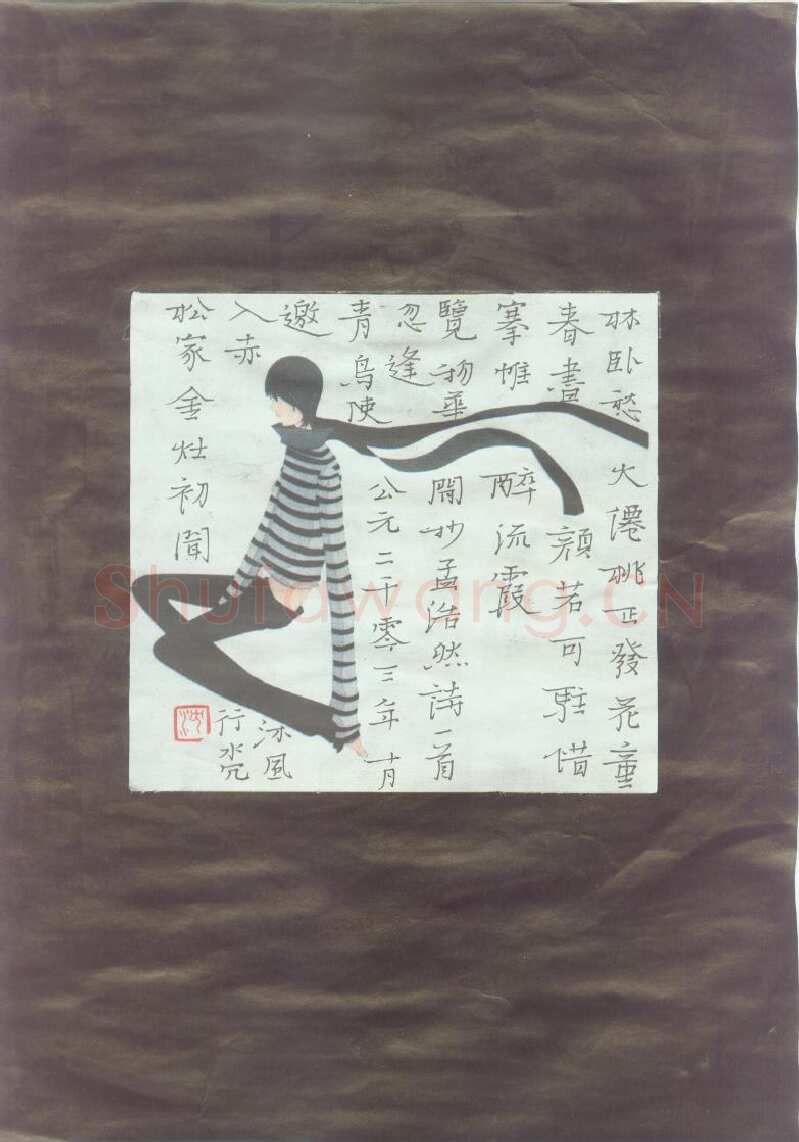 林卧愁
春盡
搴帷
覽物華
忽逢
青鳥使
邀
入赤
松家金灶初開
火僊桃正發花童
顏若可駐惜
醉流霞
閒抄孟浩然詩一首
公元二千零三年十月
沐風
行
ShufaWang.CN